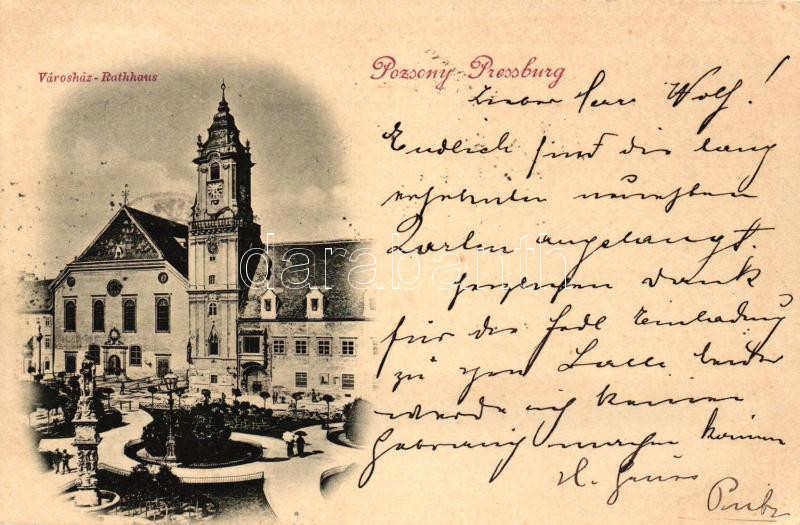 Városház-Rathhaus
Pozsony-Pressburg
Lieber Herr Wolf!
Endlich sind die lang
ersehnten neuesten
Karten angelangt.
Herzlichen Dank
für die Einladung
zu leider
werde ich keinen
Gebrauch machen können
H. Gruss
darabanth